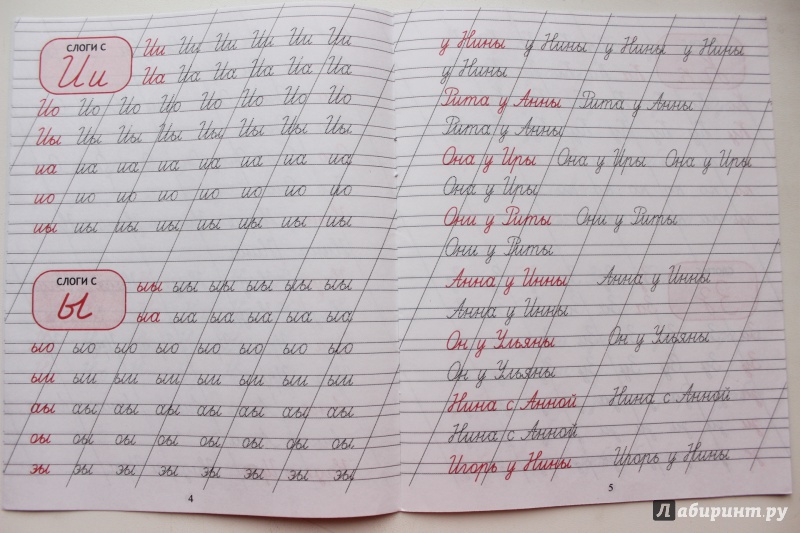 СЛОГИ С
Ии
Ии Ии Ии Ии Ии Ии
Иа Иа Иа Иа Иа Иа
Ио Ио Ио Ио Ио Ио Ио Ио
Иы Иы Иы Иы Иы Иы Иы Иы
иа иа иа иа иа иа иа иа
ио ио ио ио ио ио ио ио
иы иы иы иы иы иы иы иы
СЛОГИ С
ы
ыы ыы ыы ыы ыы ыы
ыа ыа ыа ыа ыа ыа
ыо ыо ыо ыо ыо ыо ыо ыо
ыи ыи ыи ыи ыи ыи ыи ыи
аы аы аы аы аы аы аы аы
оы оы оы оы оы оы оы оы
эы эы эы эы эы эы эы
4
у Нины у Нины у Нины у Нины
у Нины
Рита у Анны Рита у Анны
Рита у Анны
Она у Иры Она у Иры Она у Иры
Она у Иры
Они у Риты Они у Риты
Они у Риты
Анна у Инны Анна у Инны
Анна у Инны
Он у Ульяны Он у Ульяны
Он у Ульяны
Нина с Анной Нина с Анной
Нина с Анной
Игорь у Нины Игорь у Нины
5
Лабиринт.ру